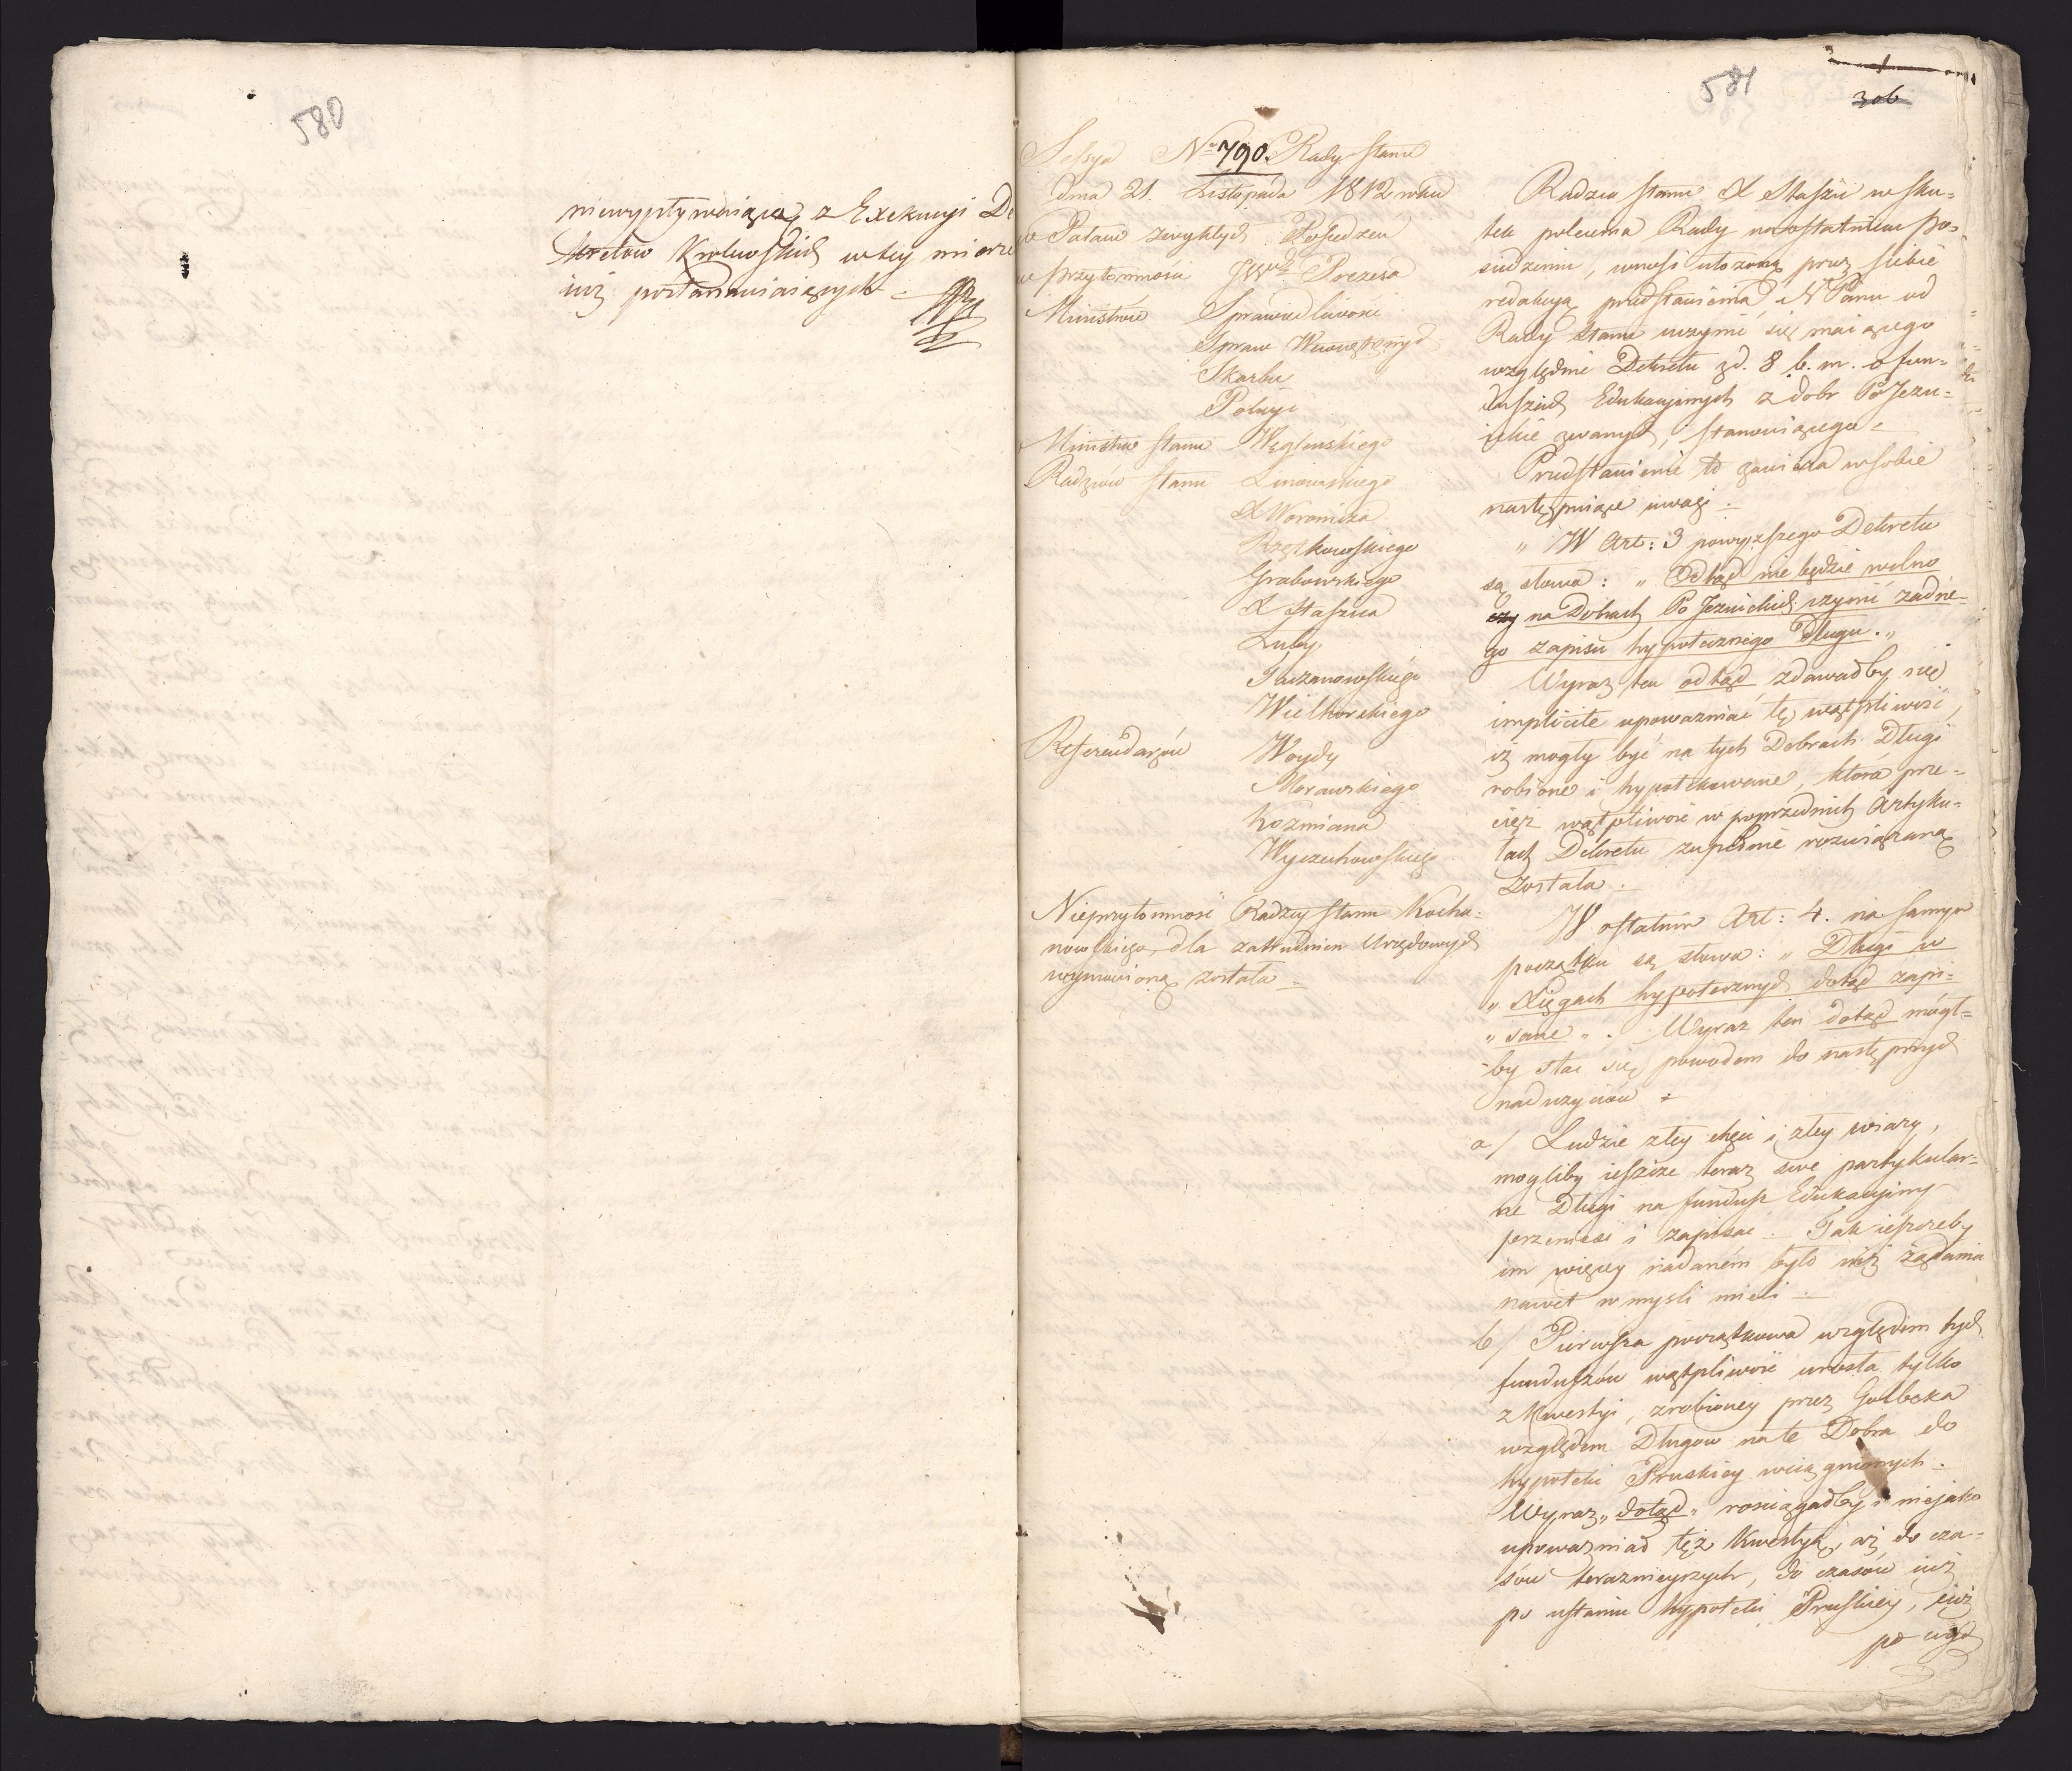 580
niewypływaiącą z Exekucyi De
kretow Krolewskich w tey mierze
iuż postanawiaiących
581
306
Sessya Nº 790. Rady Stanu
dnia 21. Listopada 1812 roku
w Pałacu zwykłych Posiedzeń
w przytomności JJWW Prezesa
Ministrów Sprawiedliwości
Spraw Wewnętrznych
Skarbu
Policyi
Ministra Stanu Węgleńskiego
Radzców Stanu Linowskiego
X Woronicza
Rzętkowskiego
Grabowskiego
X Staszica
Luby
Tuczanowskiego
Wielhorskiego
Referendarzów Woydy
Morawskiego
Kozmiana
Wyczechowskiego
Nieprzytomność Radzcy Stanu Kocha=
nowskiego, dla zatrudnien Urzędowych
wymowioną została
Radzca Stanu X Staszic w sku=
tek polecenia Rady na ostatniem po=
siedzeniu, wnosi ułożoną przez siebie
redakcyą przedstawienia N Panu od
Rady Stanu uczynić się maiącego
względnie Dekretu z d. 8 b. m. o fun=
duszach Edukacyinych z dobr Po Jezu=
ickie zwanych, stanowiącego
Przedstawienie to zawiera w sobie
następuiące uwagi
„ W Art: 3 powyższego Dekretu
są słowa: „ Odtąd nie będzie wolno
na Dobrach Po Jezuickich czynić żadne=
go zapisu hypotecznego Długu.„
Wyraz ten odtąd zdawałby się
implicite upoważniać tę wątpliwość,
iż mogły być na tych Dobrach Długi
robione i hypotekowane, która prze=
cież wątpliwość w poprzednich Artyku=
łach Dekretu zupełnie rozwiązaną
została.
W ostatnim Art: 4. na samym
początku są słowa: „ Długi w
„ Xięgach hypotecznych dotąd zapi=
„ sane „. Wyraz ten dotąd mógł=
by stać się powodem do następnych
nadużyciów =
a/ Ludzie złey chęci i złey wiary,
mogliby ieszcze teraz swe partykular=
ne Długi na fundusz Edukacyiny
przenieść i zapisać. Tak ieszczeby
im więcey nadanem było niż żądania
nawet w mysli mieli
b/ Pierwsza początkowa względem tych
funduszów wątpliwość urosła tylko
z kwestyi, zrobioney przez Gołbeka
względem Długow na te Dobra do
hypoteki Pruskiey wciągnionych.
Wyraz „dotąd„ rosciągałby i nieiako
upoważniał też kwestyą, aż do cza=
sów teraznieyszych, do czasów już
po ustaniu hypoteki Pruskiey, iuż
po